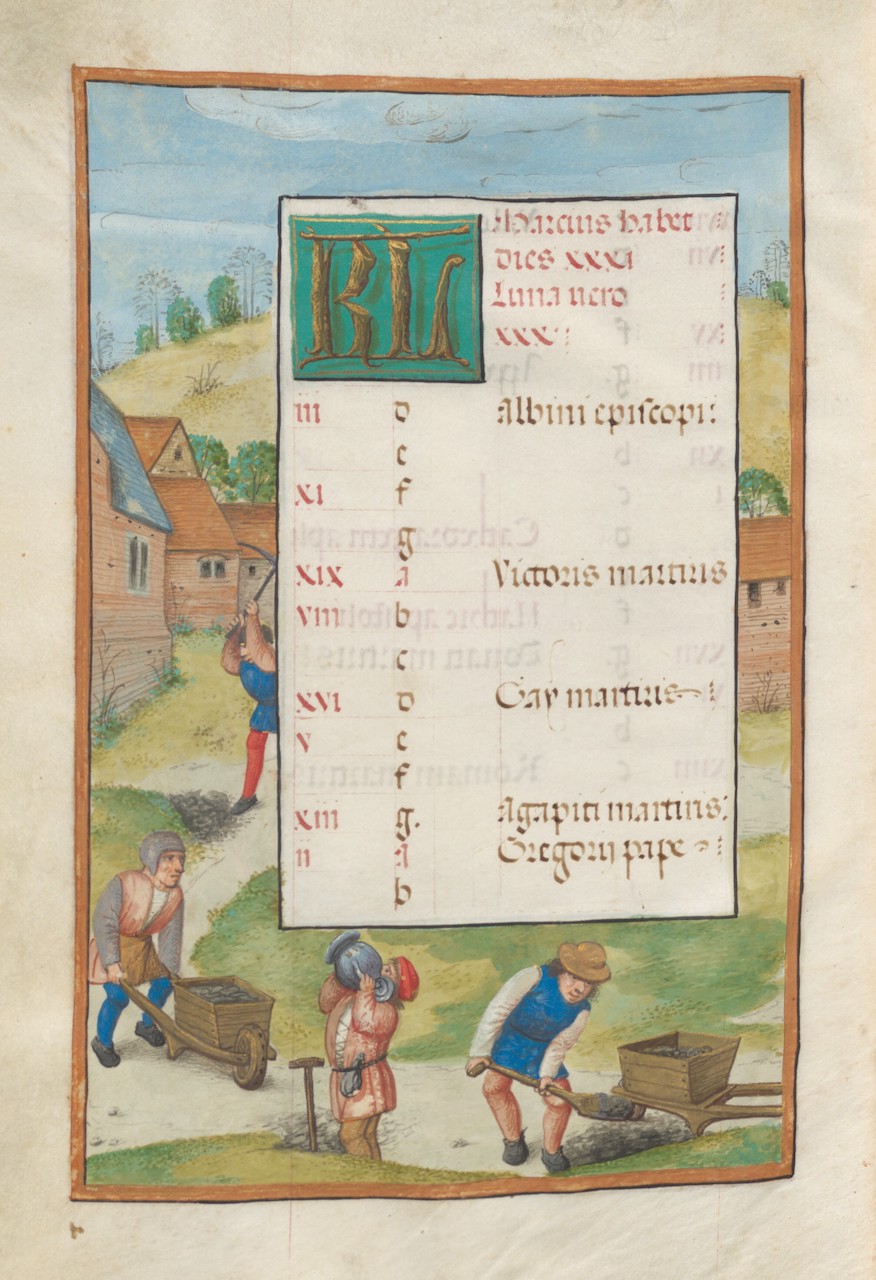 KL Marcius habet
dies xxxi
Luna vero
xxx:
iii d Albini episcopi:
e
xi f
g
xix A Victoris martiris
viii b
c
xvi d Gay martiris
v e
f
xiii g. Agapiti martiris:
ii A Gregorij pape
b